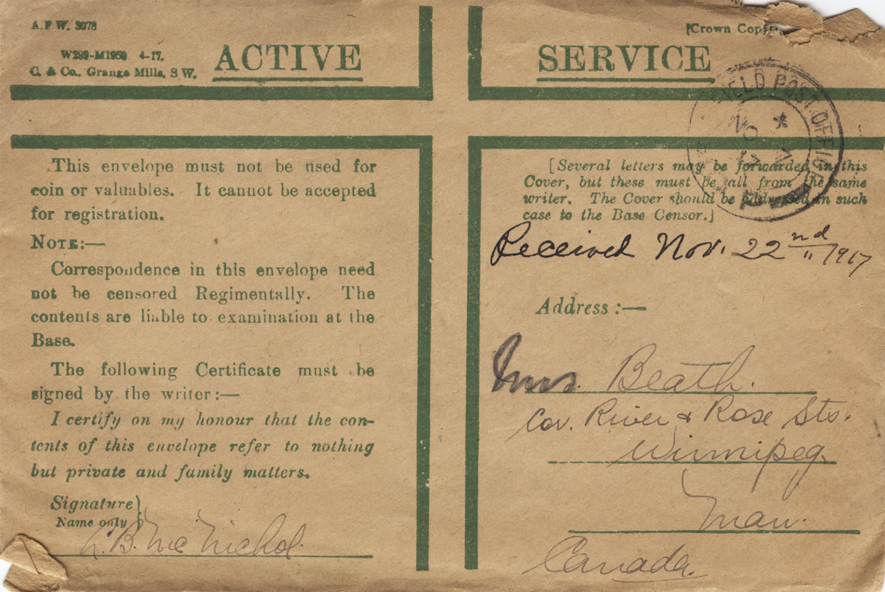 A.F.W. 3078
[Crown Copy
W299-M1959 4-17.
C. & Co., Grange Mills, S.W.
ACTIVE SERVICE
FIELD POST OFFICE
This envelope must not be used for
coin or valuables. It cannot be accepted
for registration.
NOTE:—
Correspondence in this envelope need
not be censored Regimentally. The
contents are liable to examination at the
Base.
The following Certificate must be
signed by the writer:—
I certify on my honour that the con-
tents of this envelope refer to nothing
but private and family matters.
Signature
Name only
L. B. McNichol.
[Several letters may be forwarded in this
Cover, but these must be all from the same
writer. The Cover should be addressed in such
case to the Base Censor.]
Received Nov. 22nd 1917
Address :—
Mrs. Beath.
Cor. River & Rose Sts.
Winnipeg.
Man.
Canada.